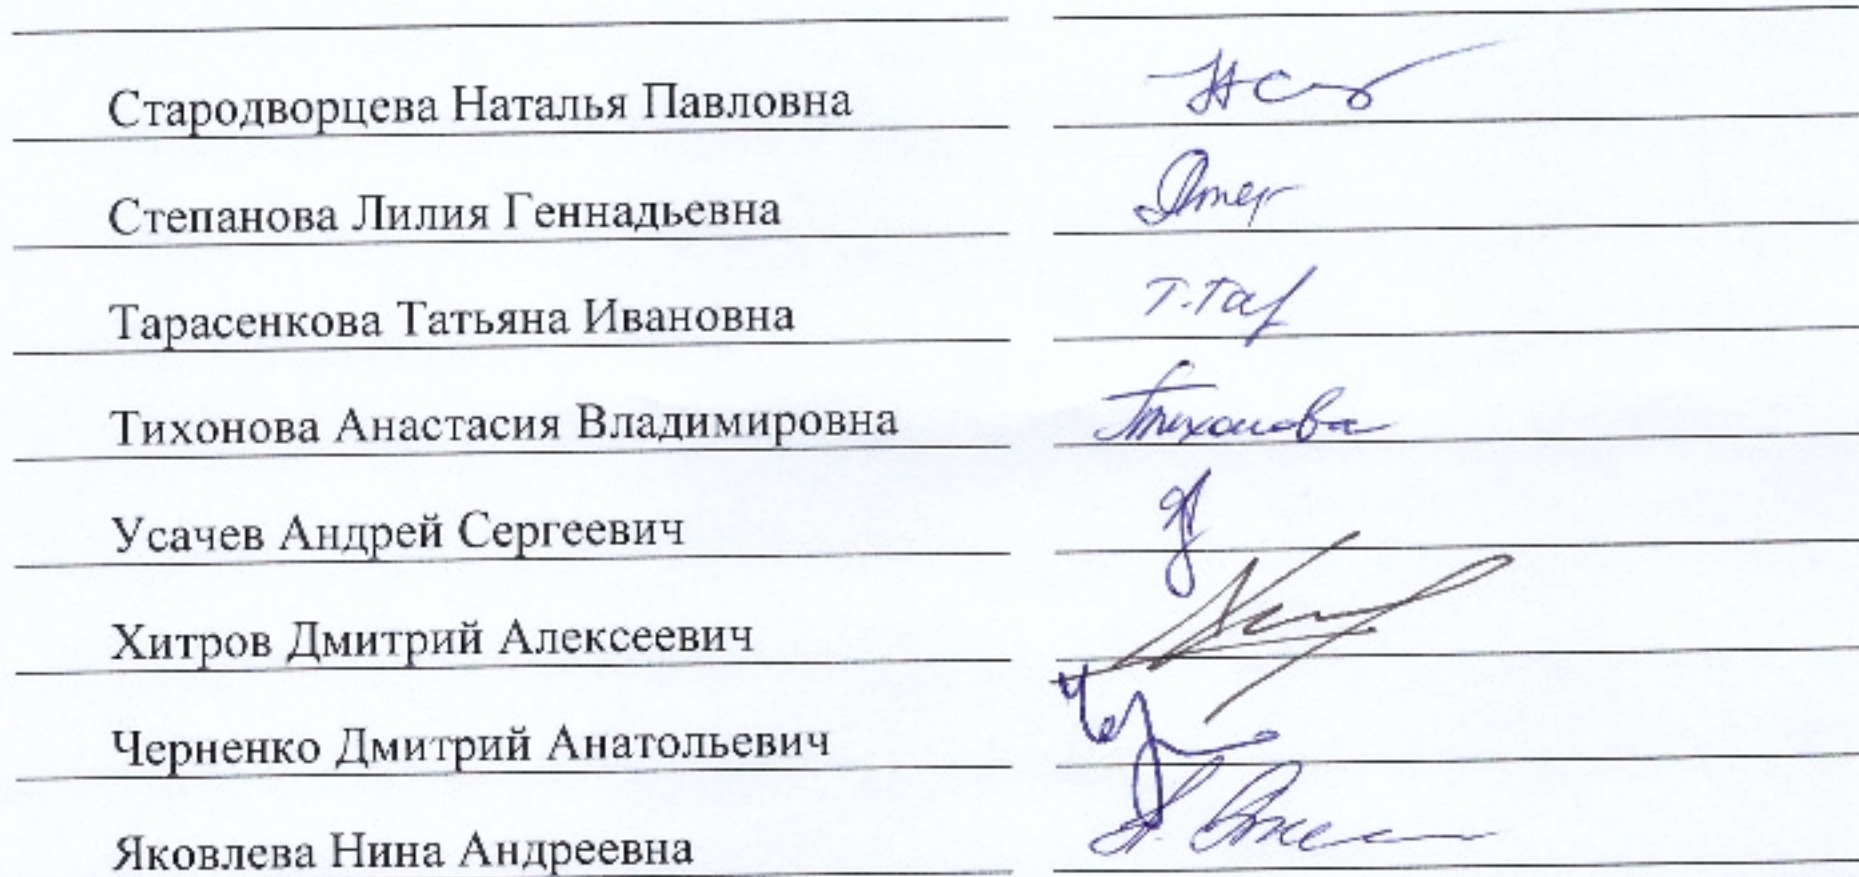 Стародворцева Наталья Павловна
Степанова Лилия Геннадьевна
Тарасенкова Татьяна Ивановна Т.Тар
Тихонова Анастасия Владимировна Тихонова
Усачев Андрей Сергеевич
Хитров Дмитрий Алексеевич
Черненко Дмитрий Анатольевич
Яковлева Нина Андреевна